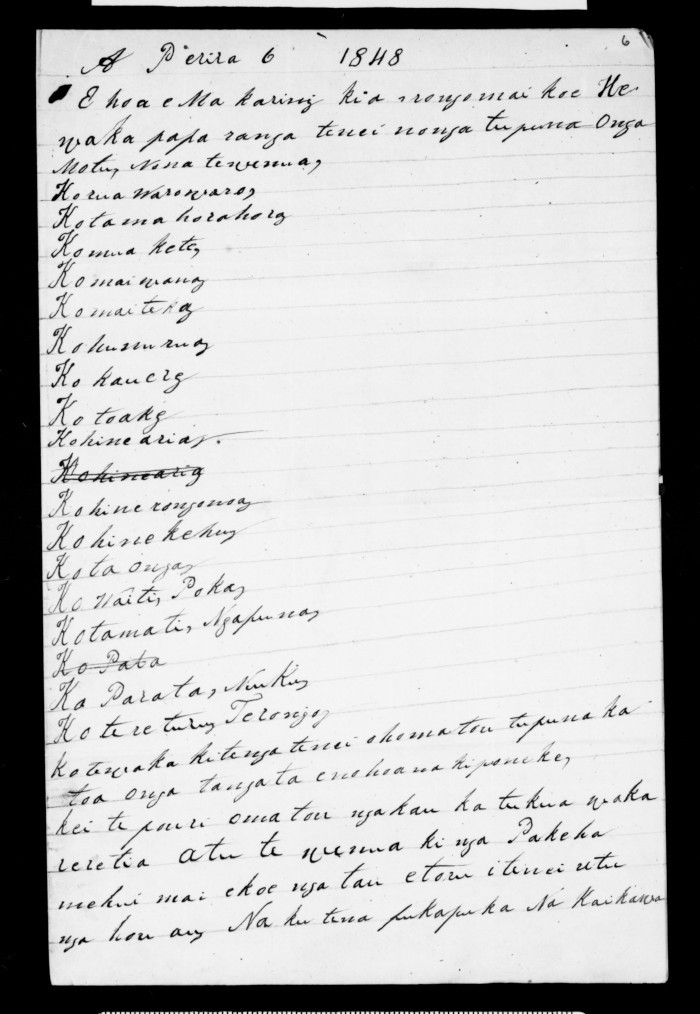 6
A Perira 6 1848
E hoa e Ma karini kia rongo mai koe He
waka papa ranga tenei nonga tupuna Onga
Motu, Nona tewenua,
Ko rua Warowaro,
Ko tama horahora
Ko mua kete,
Ko mai wana,
Ko mai teka,
Ko huruma,
Ko kauera
Ko toake
Ko hine aria,
Ko hinearia
Ko hine rongonoa,
Ko hine kehu,
Ko ta onga,
Ko Waiti, Poka,
Ko tamati, Ngapuna,
Ko Pata
Ko Parata, Nuku,
Ko te retu, Terongo,
Ko tewaka kitenga tenei ohomatou tupuna ka
toa onga tangata enohoana ki poneke,
kei te pouri omatou ngakau ka tukua waka
reretia atu te wenua ki nga Pakeha
mehui mai ekoe nga tau etoru itenei utu
nga hou au, Na ku tena pukapuka Na Kaikawa